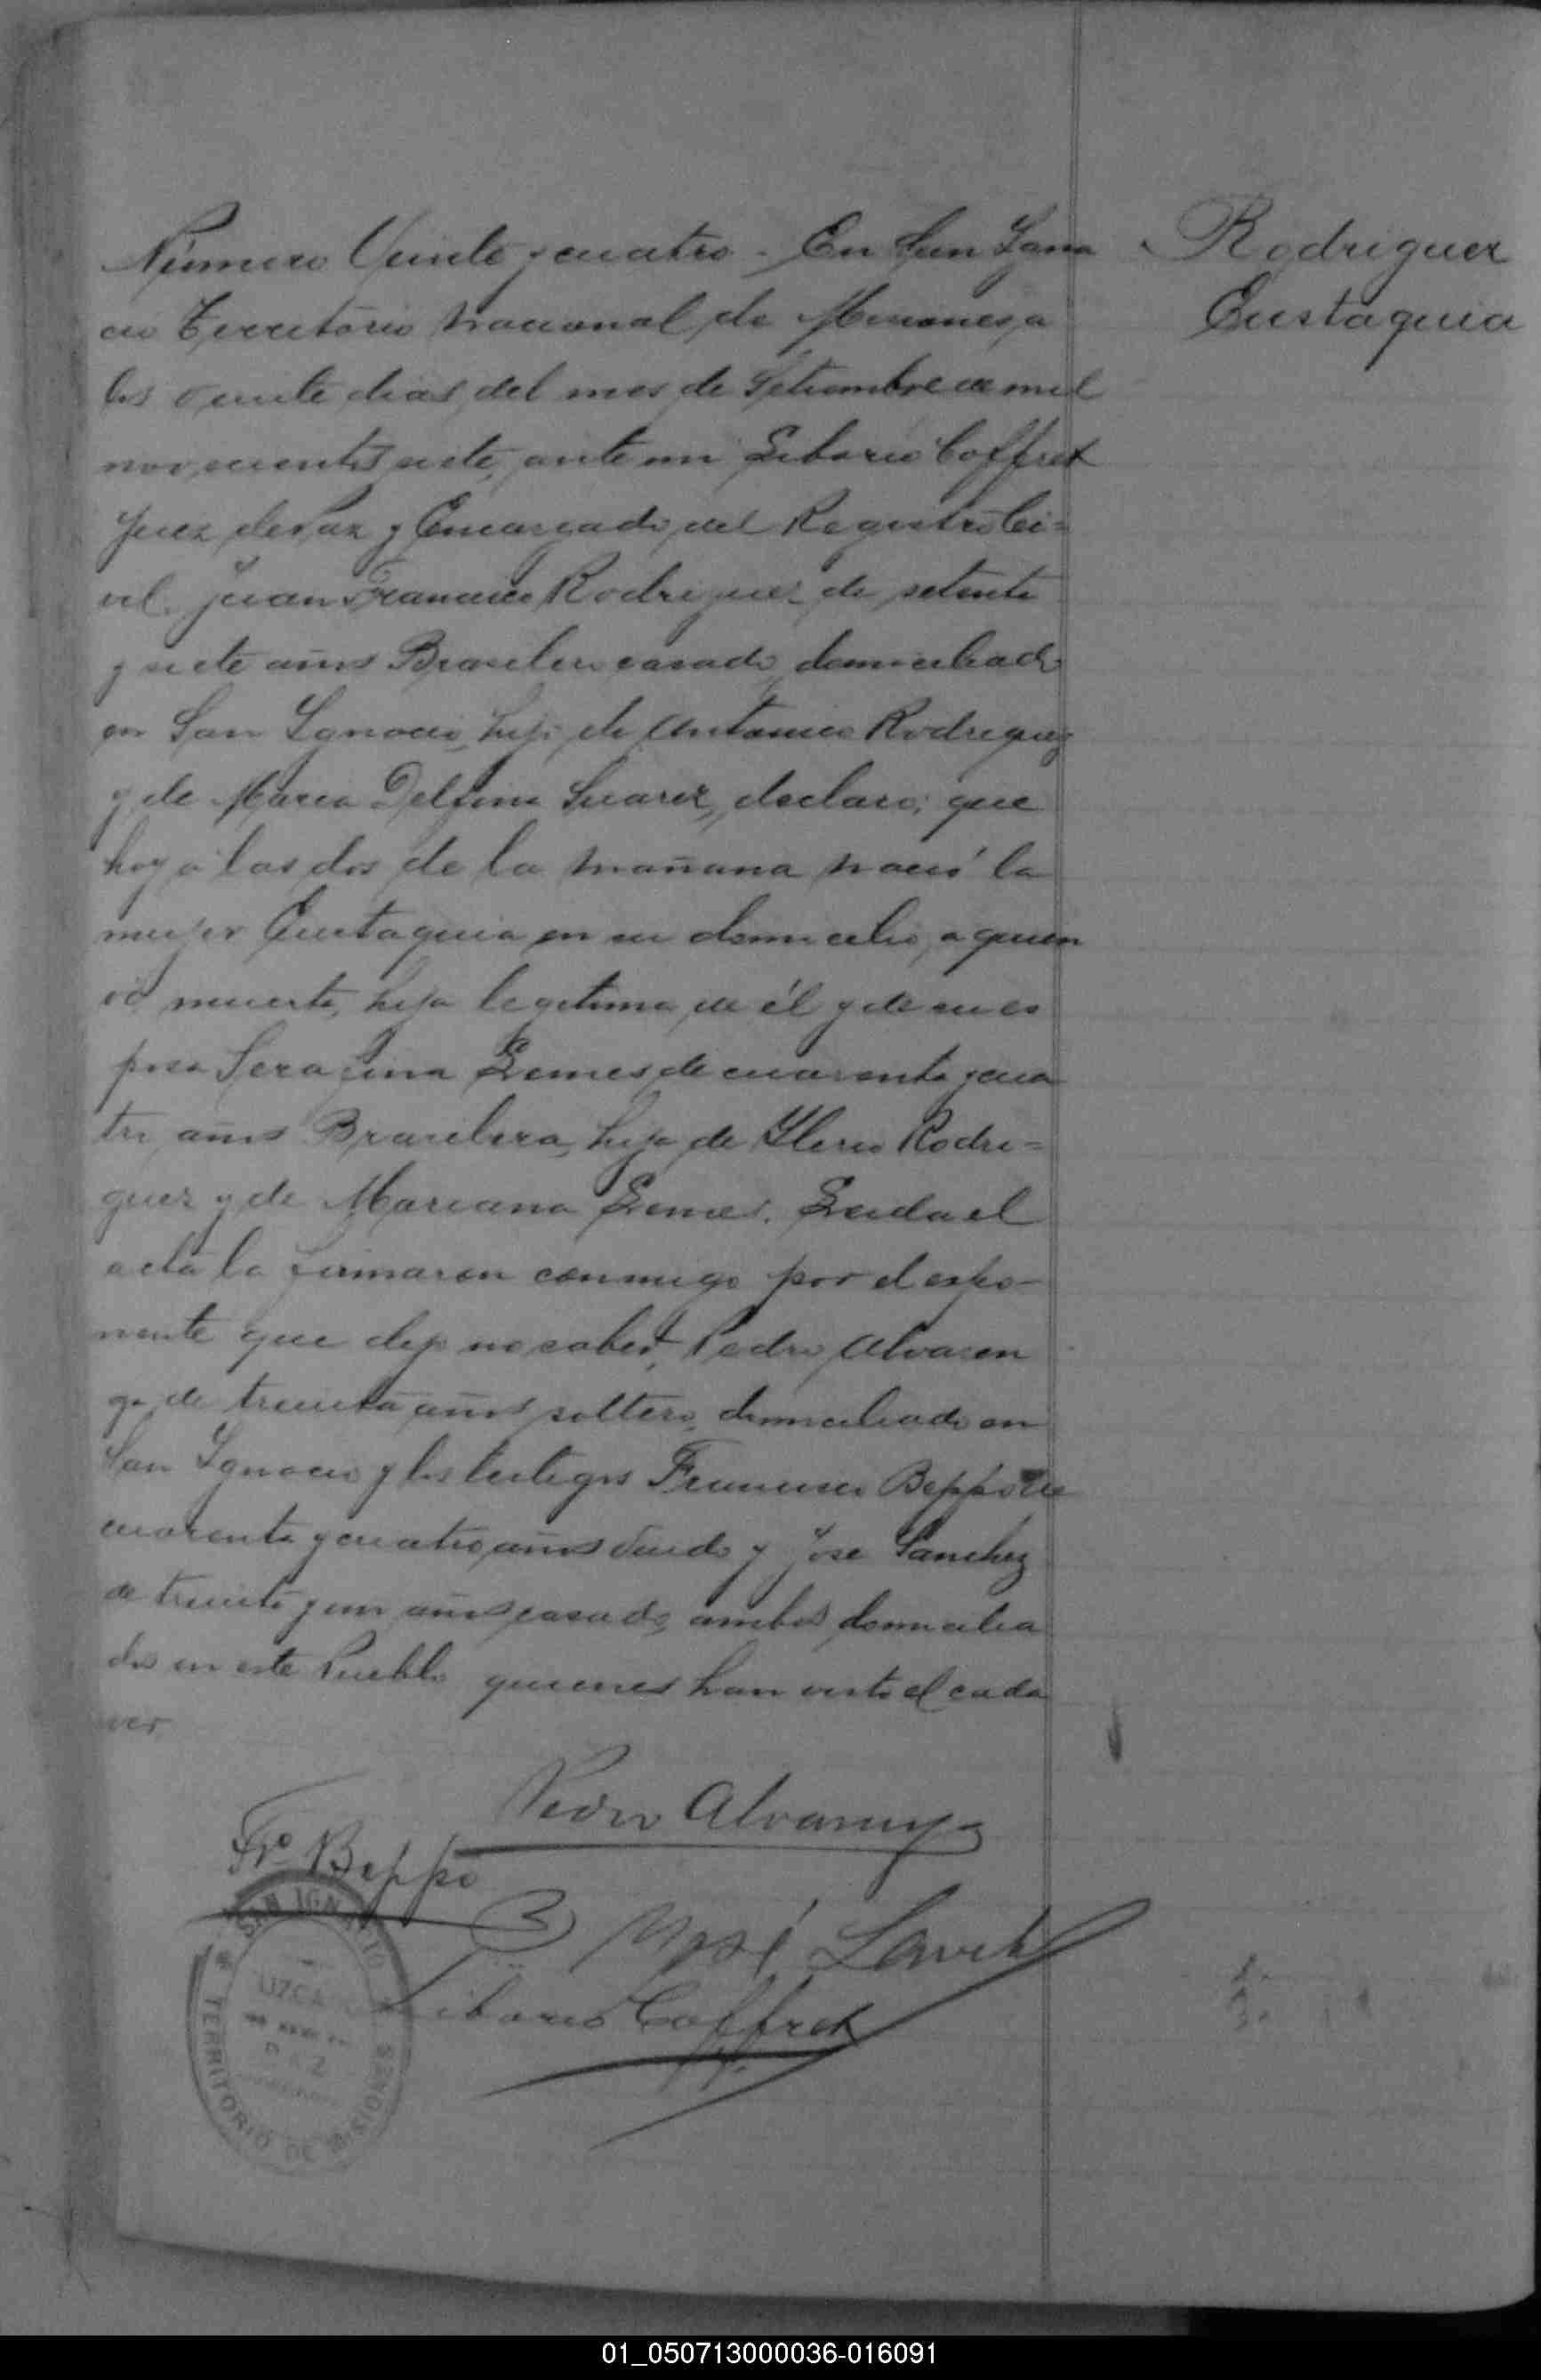 Rodriguez
Eustaquia
Número Veinte y cuatro - En San Igna
cio Territorio Nacional de Misiones, a
los veinte dias del mes de Setiembre de mil
novecientos siete, ante mi Liborio Coffret
Juez de Paz y Encargado del Registro Ci=
vil. Juan Francisco Rodriguez, de setenta
y siete años Brasilero casado, domiciliado
en San Ignacio, hijo de Antonio Rodriguez
y de Maria Delfina Suarez, declaró; que
hoy a las dos de la mañana nació la
mujer Eustaquia en su domicilio, a quien
vi muerta, hija legitima de él y de su es
posa Serafina Lemes de cuarenta y cua
tro años Brasilera, hija de Rodri=
guez y de Mariana Lemes. Leida el
acta la firmaron conmigo por el espo-
nente que dijo no saber, Pedro Alvaren
ga de treinta años soltero, domiciliado en
San Ignacio y los testigos Francisco Beppo de
cuarenta y cuatro años viudo y José Sanchez
de treinta y un años casado, ambos domicilia
dos en este Pueblo quienes han visto el cada
ver.
Pedro Alvarenga
Fco Beppo
José
Liborio Coffret
SAN IGNACIO
JUZGADO
DE PAZ
TERRITORIO DE MISIONES
01_050713000036-016091